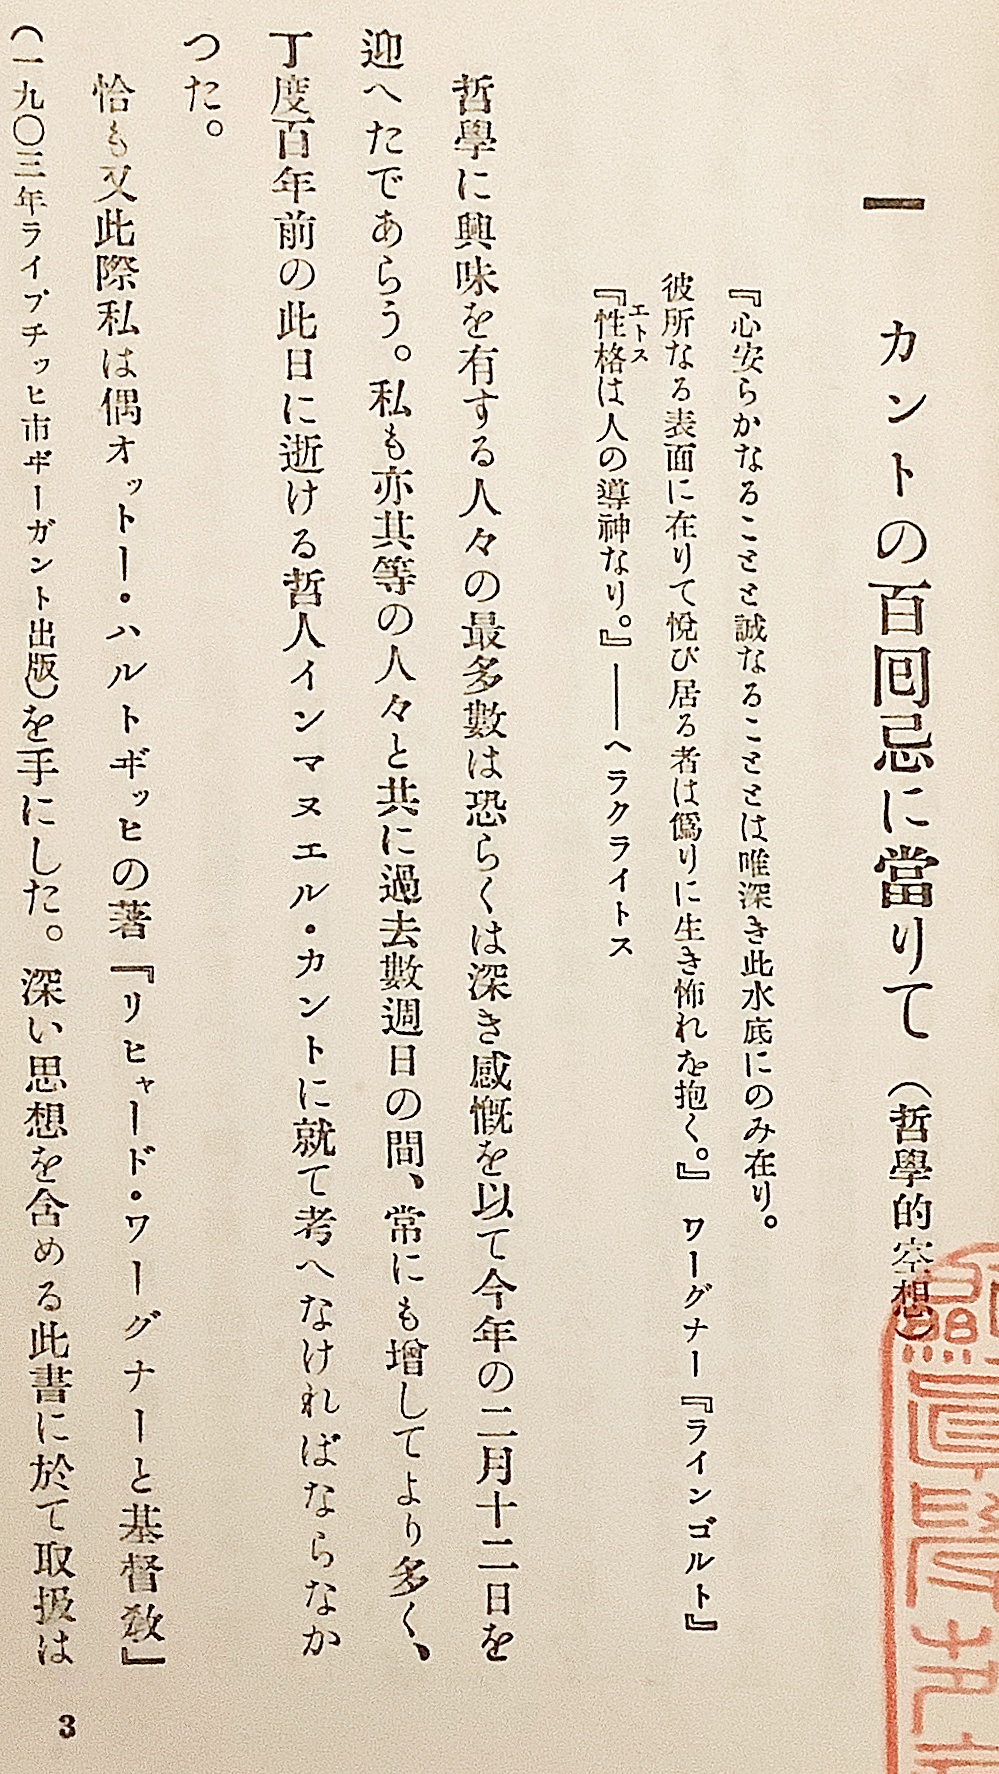 一　カントの百回忌に當りて（哲學的空想）
『心安らかなることと誠なることとは唯深き此水底にのみ在り。
彼所なる表面に在りて悅び居る者は僞りに生き怖れを抱く。』　ワーグナー『ラインゴルト』
エトス
『性格は人の導神なり。』――ヘラクライトス
哲學に興味を有する人々の最多數は恐らくは深き感慨を以て今年の二月十二日を
迎へたであらう。私も亦其等の人々と共に過去數週日の間、常にも增してより多く、
丁度百年前の此日に逝ける哲人インマヌエル・カントに就て考へなければならなか
つた。
恰も又此際私は偶オットー・ハルトヸッヒの著『リヒャード・ワーグナーと基督敎』
（一九〇三年ライプチッヒ市ヸーガント出版）を手にした。深い思想を含める此書に於て取扱は
3